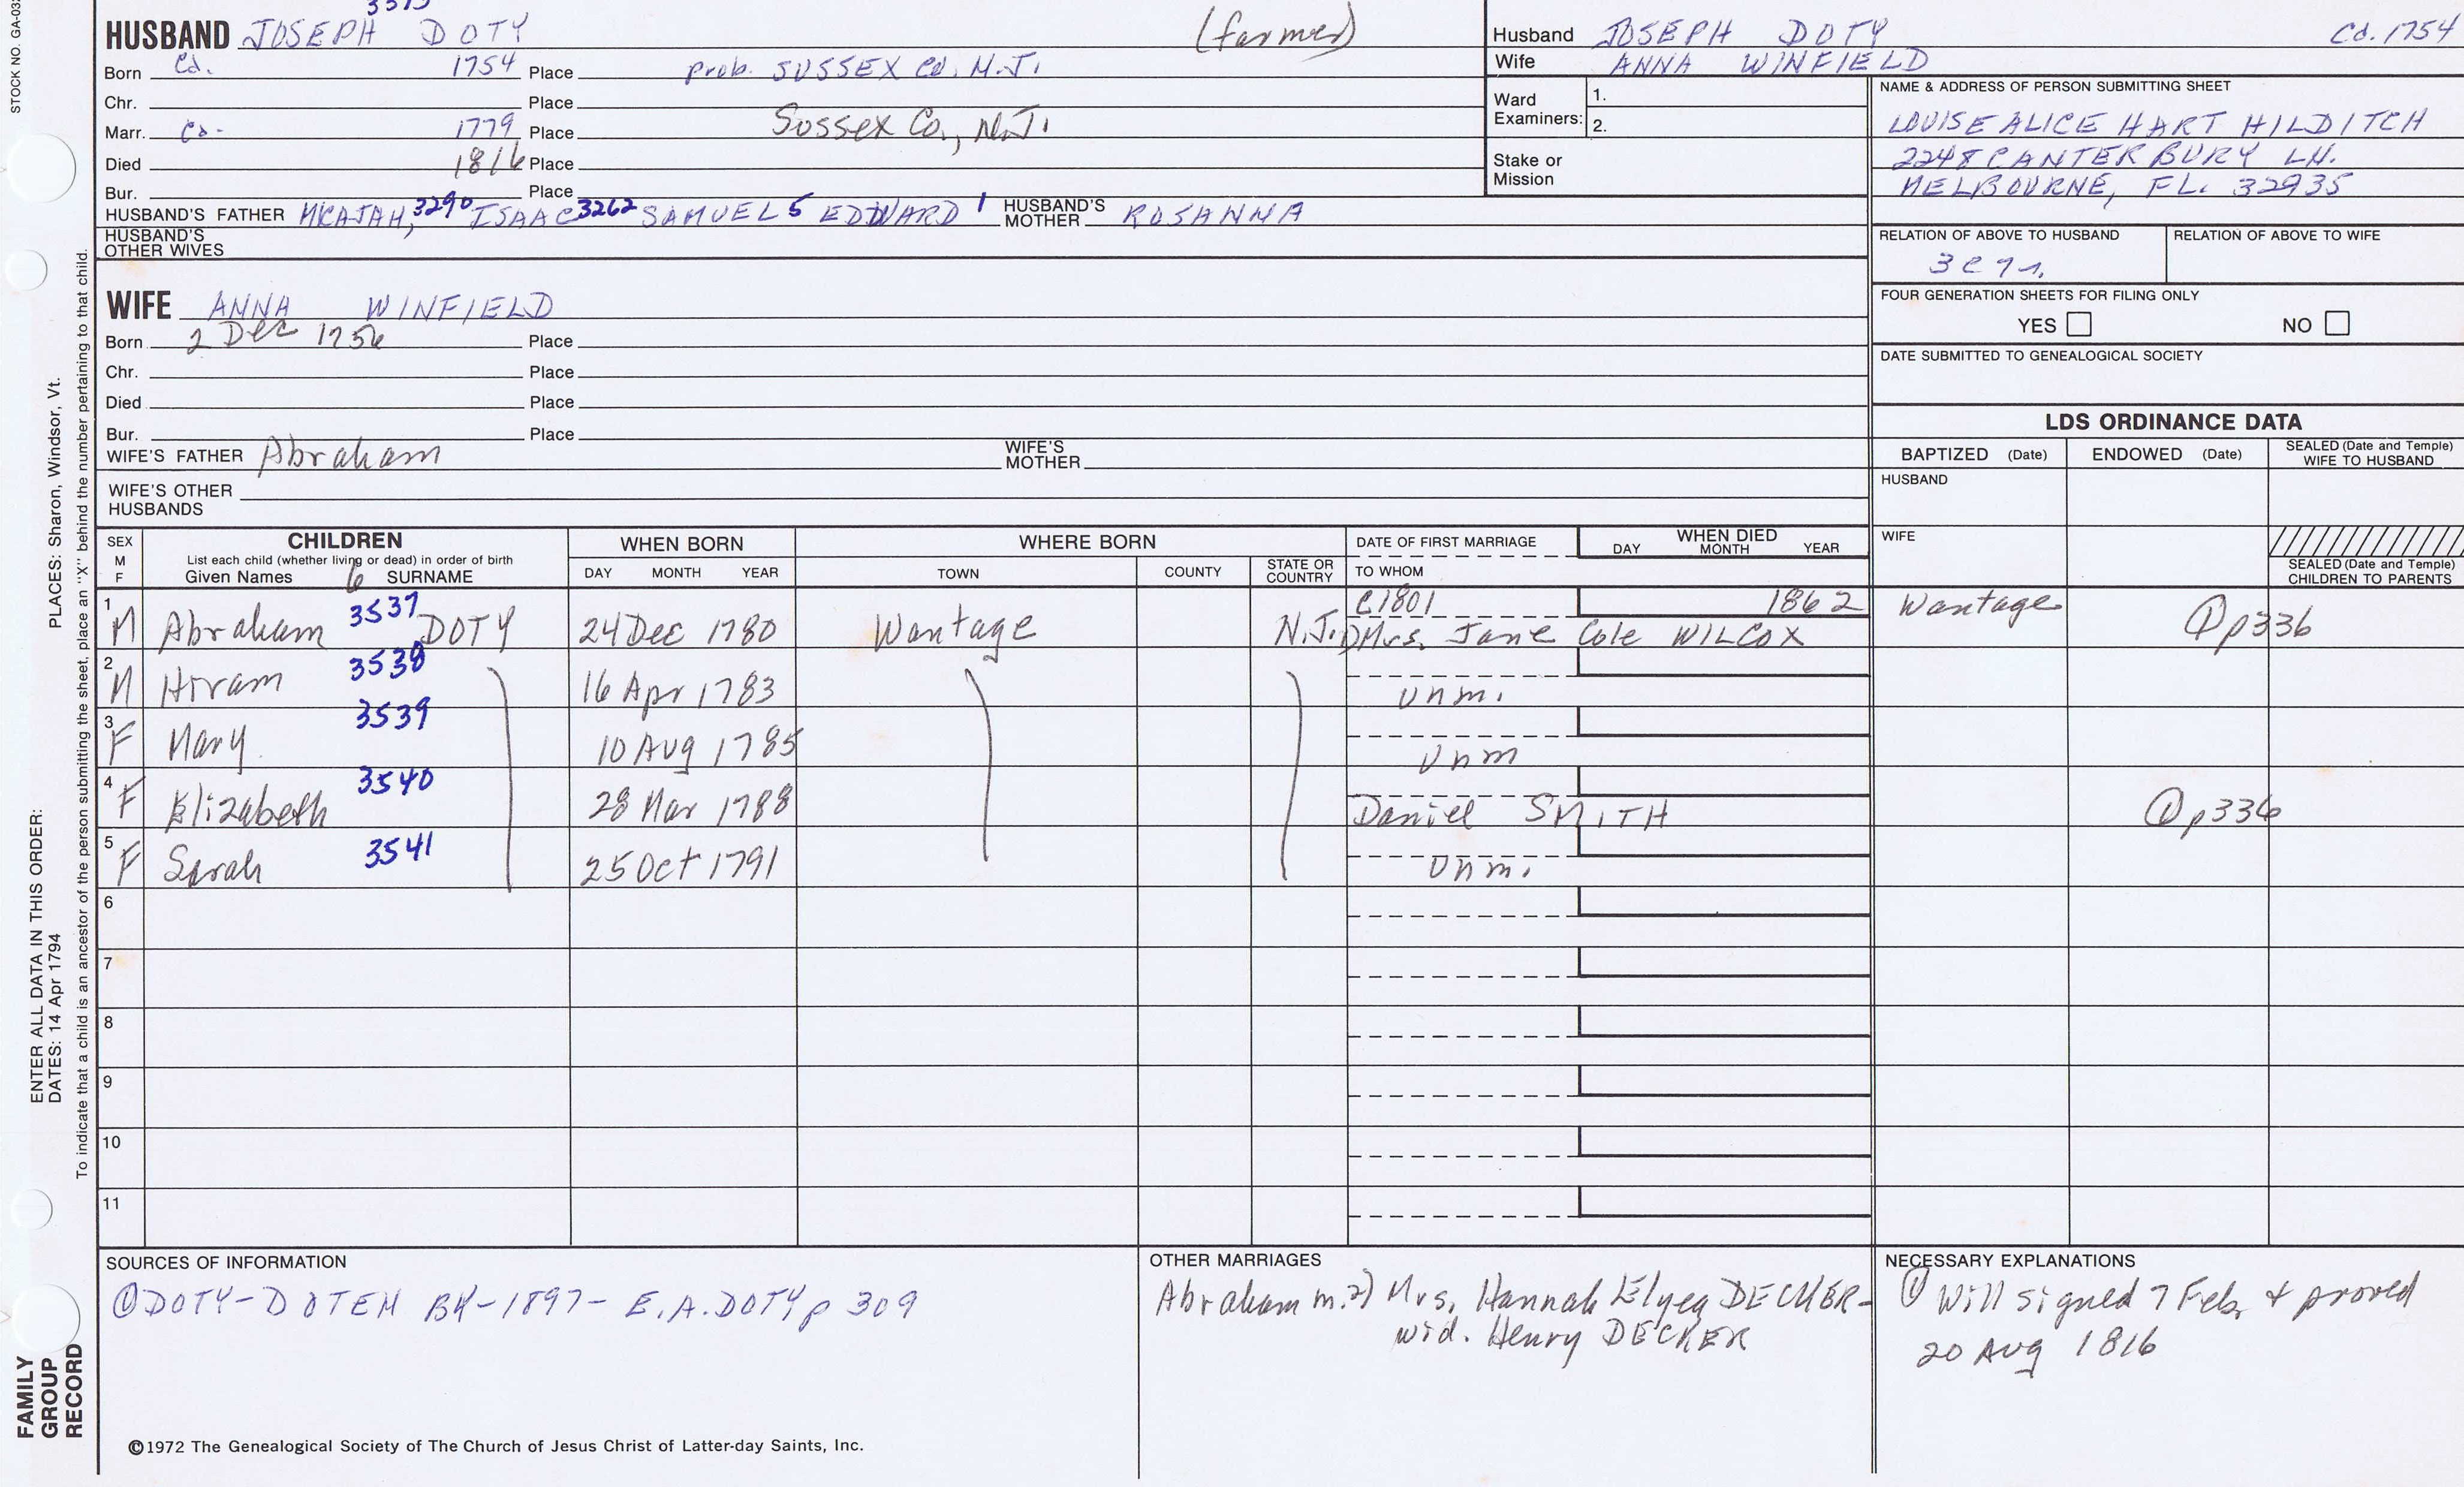 STOCK NO. GA-03
HUSBAND JOSEPH DOTY (farmer)
Born Ca. 1754 Place prob. SUSSEX CO. N.J.
Chr. Place
Marr. Ca. 1779 Place Sussex Co., N.J.
Died 1816 Place
Bur. Place
HUSBAND'S FATHER MICAJAH, 3290 ISAAC 3262 SAMUEL 5 EDWARD 1 HUSBAND'S MOTHER ROSANNA
HUSBAND'S OTHER WIVES
WIFE ANNA WINFIELD
Born 2 Dec 1756 Place
Chr. Place
Died Place
Bur. Place
WIFE'S FATHER Abraham WIFE'S MOTHER
WIFE'S OTHER HUSBANDS
Husband JOSEPH DOTY Ca. 1754
Wife ANNA WINFIELD
Ward Examiners: 1.
2.
Stake or Mission
NAME & ADDRESS OF PERSON SUBMITTING SHEET
LOUISE ALICE HART HILDITCH
2248 CANTERBURY LN.
MELBOURNE, FL. 32935
RELATION OF ABOVE TO HUSBAND RELATION OF ABOVE TO WIFE
FOUR GENERATION SHEETS FOR FILING ONLY
YES NO
DATE SUBMITTED TO GENEALOGICAL SOCIETY
LDS ORDINANCE DATA
BAPTIZED (Date) ENDOWED (Date) SEALED (Date and Temple) WIFE TO HUSBAND
HUSBAND
WIFE
SEALED (Date and Temple) CHILDREN TO PARENTS
SEX M F
CHILDREN
List each child (whether living or dead) in order of birth
Given Names 6 SURNAME
WHEN BORN
DAY MONTH YEAR
WHERE BORN
TOWN COUNTY STATE OR COUNTRY
DATE OF FIRST MARRIAGE
TO WHOM
WHEN DIED
DAY MONTH YEAR
1 M Abraham 3537 DOTY 24 Dec 1780 Wantage N.J. C1801 1862 Wantage ① p336
1) Mrs. Jane Cole WILCOX
2 M Hiram 3538 16 Apr 1783 unm.
3 F Mary 3539 10 Aug 1785 Unm
4 F Elizabeth 3540 28 Mar 1788 Daniel SMITH ① p336
5 F Sarah 3541 25 Oct 1791 Unm.
6
7
8
9
10
11
SOURCES OF INFORMATION
① DOTY-DOTEN BK-1897- E.A. DOTY p 309
OTHER MARRIAGES
Abraham m. 2) Mrs. Hannah Elyea DECKER-
wid. Henry DECKER
NECESSARY EXPLANATIONS
① Will signed 7 Feb. & proved
20 Aug 1816
©1972 The Genealogical Society of The Church of Jesus Christ of Latter-day Saints, Inc.
FAMILY
GROUP
RECORD
ENTER ALL DATA IN THIS ORDER:
DATES: 14 Apr 1794 PLACES: Sharon, Windsor, Vt.
To indicate that a child is an ancestor of the person submitting the sheet, place an "X" behind the number pertaining to that child.